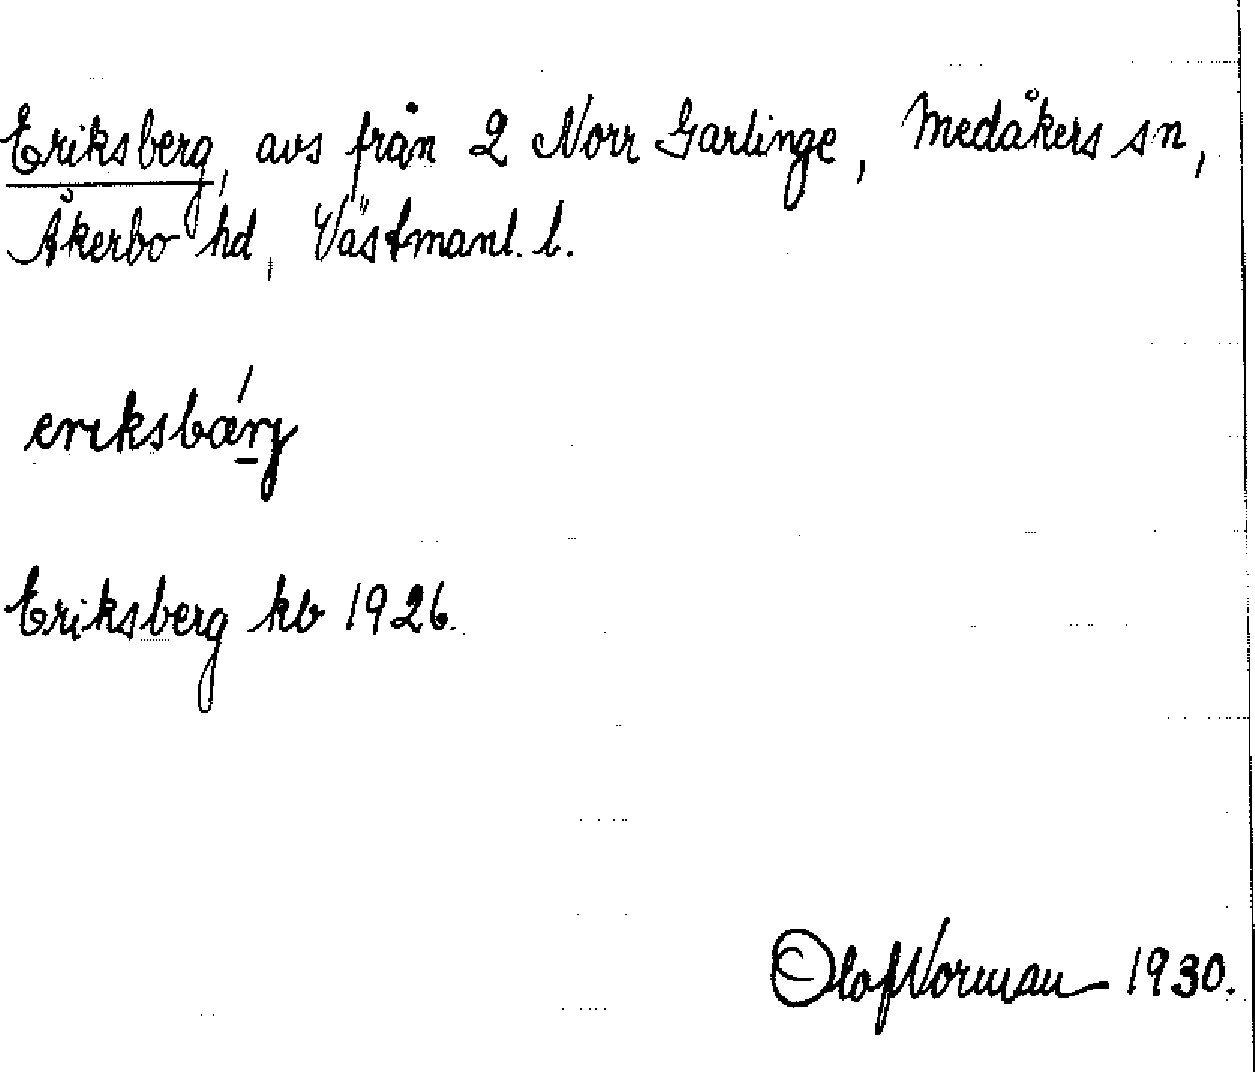 Eriksberg, avs från 2 Norr Garlinge, Medåkers sn,
Åkerbo hd, Västmanl. l.
erıksbæŕ̲j
Eriksberg kb 1926.
Olof Norman 1930.